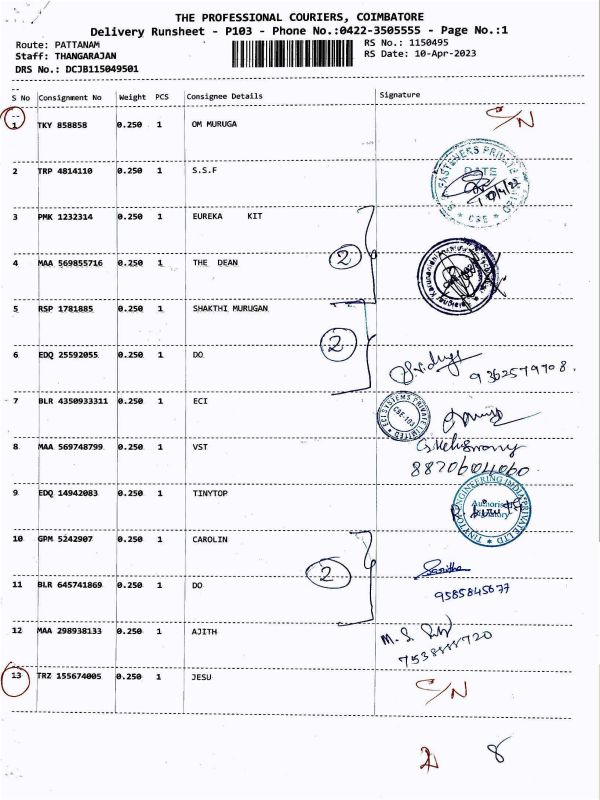 THE PROFESSIONAL COURIERS, COIMBATORE
Delivery Runsheet - P103 - Phone No.:0422-3505555 - Page No.:1
Route: PATTANAM RS No.: 1150495
Staff: THANGARAJAN RS Date: 10-Apr-2023
DRS No.: DCJB115049501
S No Consignment No Weight PCS Consignee Details Signature
1 TKY 858858 0.250 1 OM MURUGA C/N
2 TRP 4814110 0.250 1 S.S.F
3 PMK 1232314 0.250 1 EUREKA KIT
4 MAA 569855716 0.250 1 THE DEAN 2
5 RSP 1781885 0.250 1 SHAKTHI MURUGAN
2
6 EDQ 25592055 0.250 1 DO
9362579708.
7 BLR 4350933311 0.250 1 ECI
ECI SYSTEMS PRIVATE LIMITED CBE-103
8 MAA 569748799 0.250 1 VST
8870604060
9 EDQ 14942083 0.250 1 TINYTOP
TINYTOP ENGINEERING INDIA PRIVATE LTD
Authorised Signatory
10 GPM 5242907 0.250 1 CAROLIN
2
11 BLR 645741869 0.250 1 DO
9585845677
12 MAA 298938133 0.250 1 AJITH
7538888720
13 TRZ 155674005 0.250 1 JESU C/N
2 8